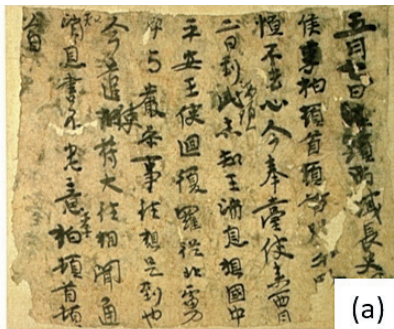 五月七日海頭西域長史
侯李柏頓首頓首別
恒不去心今奉臺使来西月
二日到此海頭未知王消息想國中
平安王使迴復羅從北虜
中与嚴參事往想是到也
今遣使苻大往相聞通
知消息書不悉意李柏頓首頓首
(a)